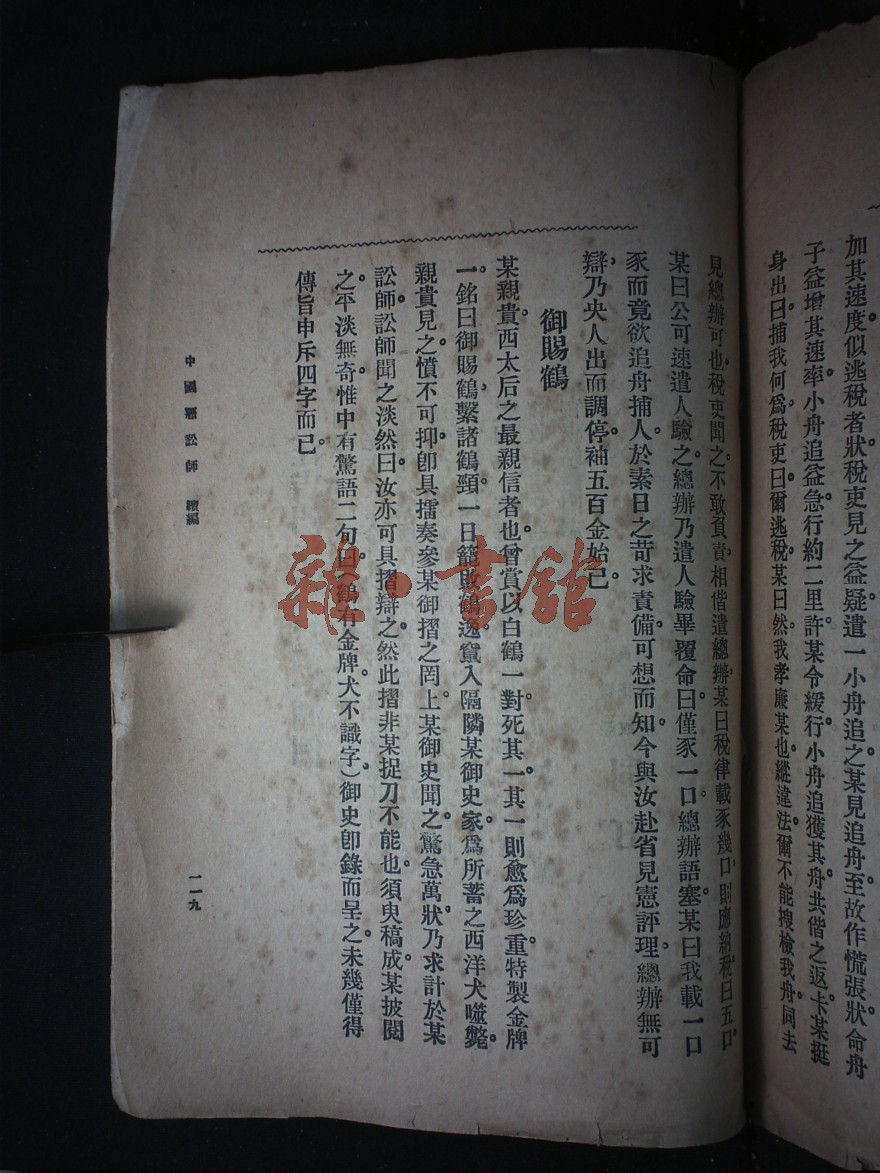 加其速度似逃稅者狀稅吏見之益疑遣一小舟追之某見追舟至故作慌張狀命舟
子益增其速率小舟追益急行約二里許某令緩行小舟追獲其舟共偕之返卡某挺
身出曰捕我何爲稅吏曰爾逃稅某曰然我孝廉某也縱違法爾不能搜檢我舟同去
見總辦可也稅吏聞之不敢負責相偕遣總辦某曰稅律載豕幾口則應納稅曰五口
某曰公可速遣人驗之總辦乃遣人驗畢覆命曰僅豕一口總辦語塞某曰我載一口
豕而竟欲追舟捕人於素日之苛求責備可想而知今與汝赴省見憲評理總辦無可
辯乃央人出而調停袖五百金始已。
御賜鶴
某親貴西太后之最親信者也曾賞以白鶴一對死其一其一則愈爲珍重特製金牌
一銘曰御賜鶴繫諸鶴頸一日籠敗鶴逸竄入隔隣某御史家爲所蓄之西洋犬噬斃。
親貴見之憤不可抑卽具摺奏參某御史之罔上某御史聞之驚急萬狀乃求計於某
訟師訟師聞之淡然曰汝亦可具摺辯之然此摺非某捉刀不能也須臾稿成某披閱
之平淡無奇惟中有驚語二句曰(鶴有金牌犬不識字)御史卽錄而呈之未幾僅得
傳旨申斥四字而已。
中國惡訟師 續編
一一九
雜·書館